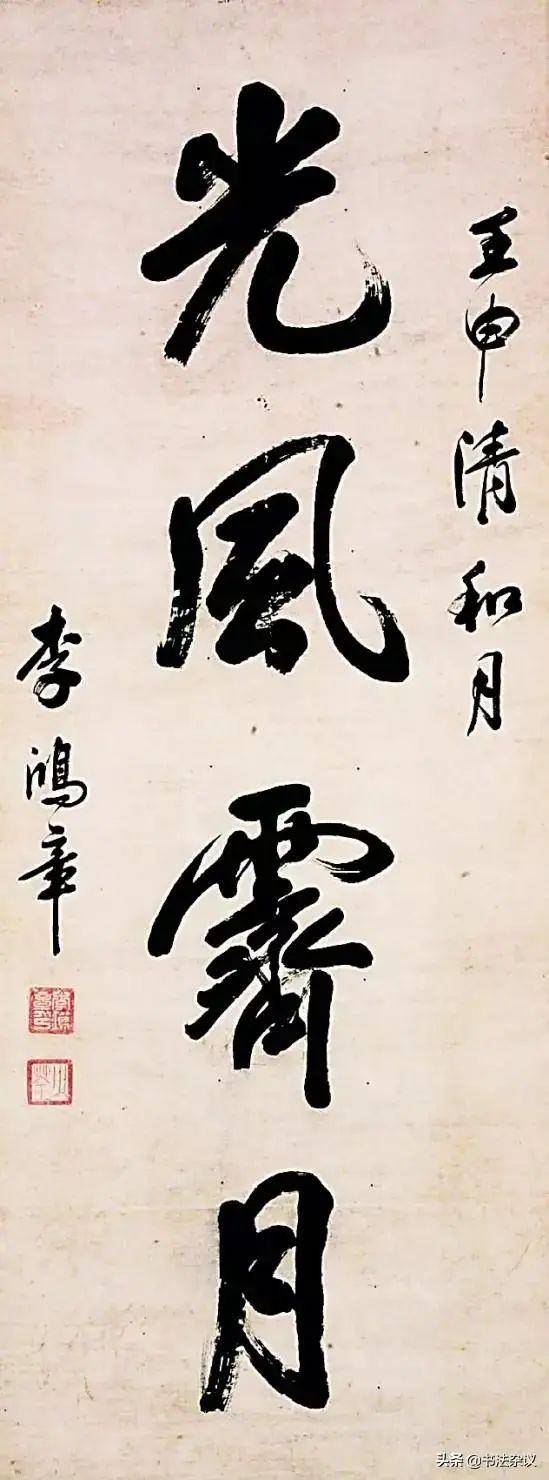 壬申清和月
光風霽月
李鴻章
头条 @书法杂议